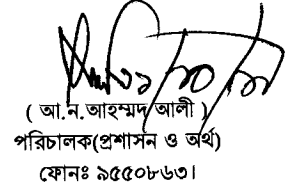 ( আ.ন.আহম্মদ আলী )
পরিচালক(প্রশাসন ও অর্থ)
ফোনঃ ৯৫৫০৮৬৩।